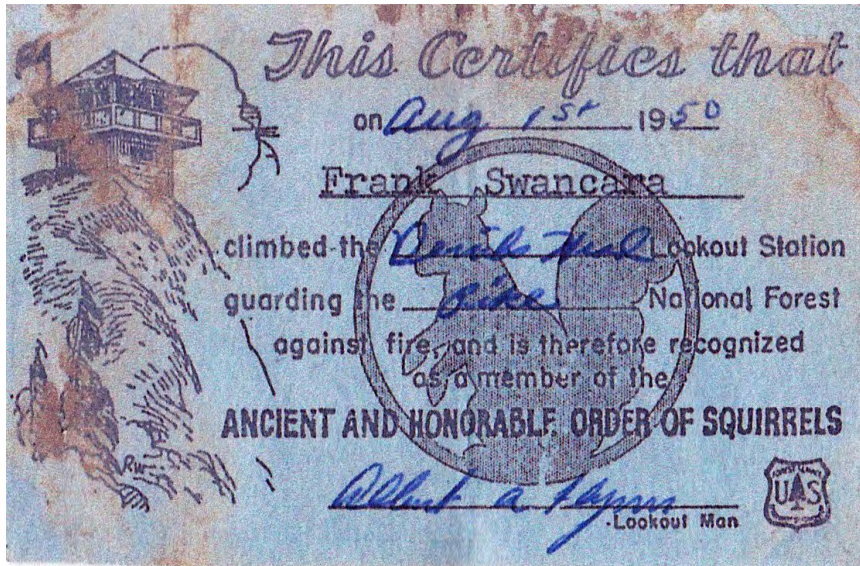 This Certifies that
on Aug 1st 1950
Frank Swancara
climbed the Devils Head Lookout Station
guarding the Pike National Forest
against fire, and is therefore recognized
as a member of the
ANCIENT AND HONORABLE ORDER OF SQUIRRELS
Albert A
Lookout Man
RW
FOREST SERVICE
US